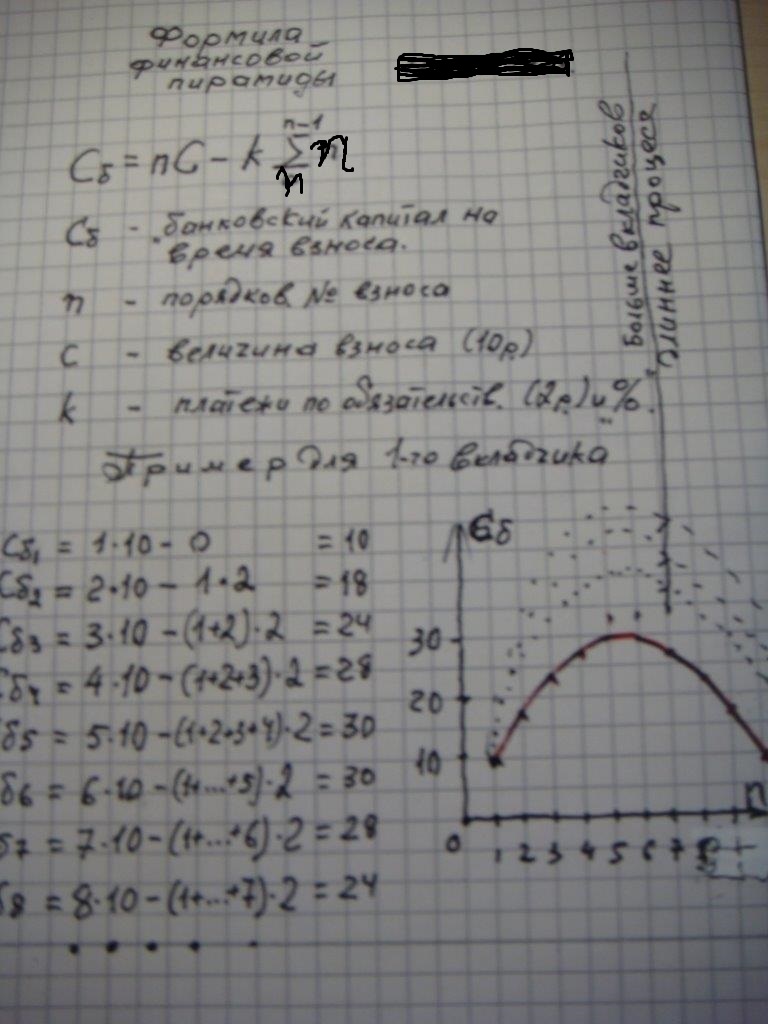 Формула
финансовой
пирамиды
Cб = nC - k ∑ n
n-1
n
Cб - банковский капитал на
время взноса.
n - порядков. № взноса
C - величина взноса (10р)
k - платежи по обязательств. (2р) и %.
Пример для 1-го вкладчика
Cб1 = 1·10 - 0 = 10
Cб2 = 2·10 - 1·2 = 18
Cб3 = 3·10 - (1+2)·2 = 24
Cб4 = 4·10 - (1+2+3)·2 = 28
б5 = 5·10 - (1+2+3+4)·2 = 30
б6 = 6·10 - (1+...+5)·2 = 30
б7 = 7·10 - (1+...+6)·2 = 28
б8 = 8·10 - (1+...+7)·2 = 24
Больше вкладчиков
длиннее процесс
Cб
30
20
10
0 1 2 3 4 5 6 7 8
n